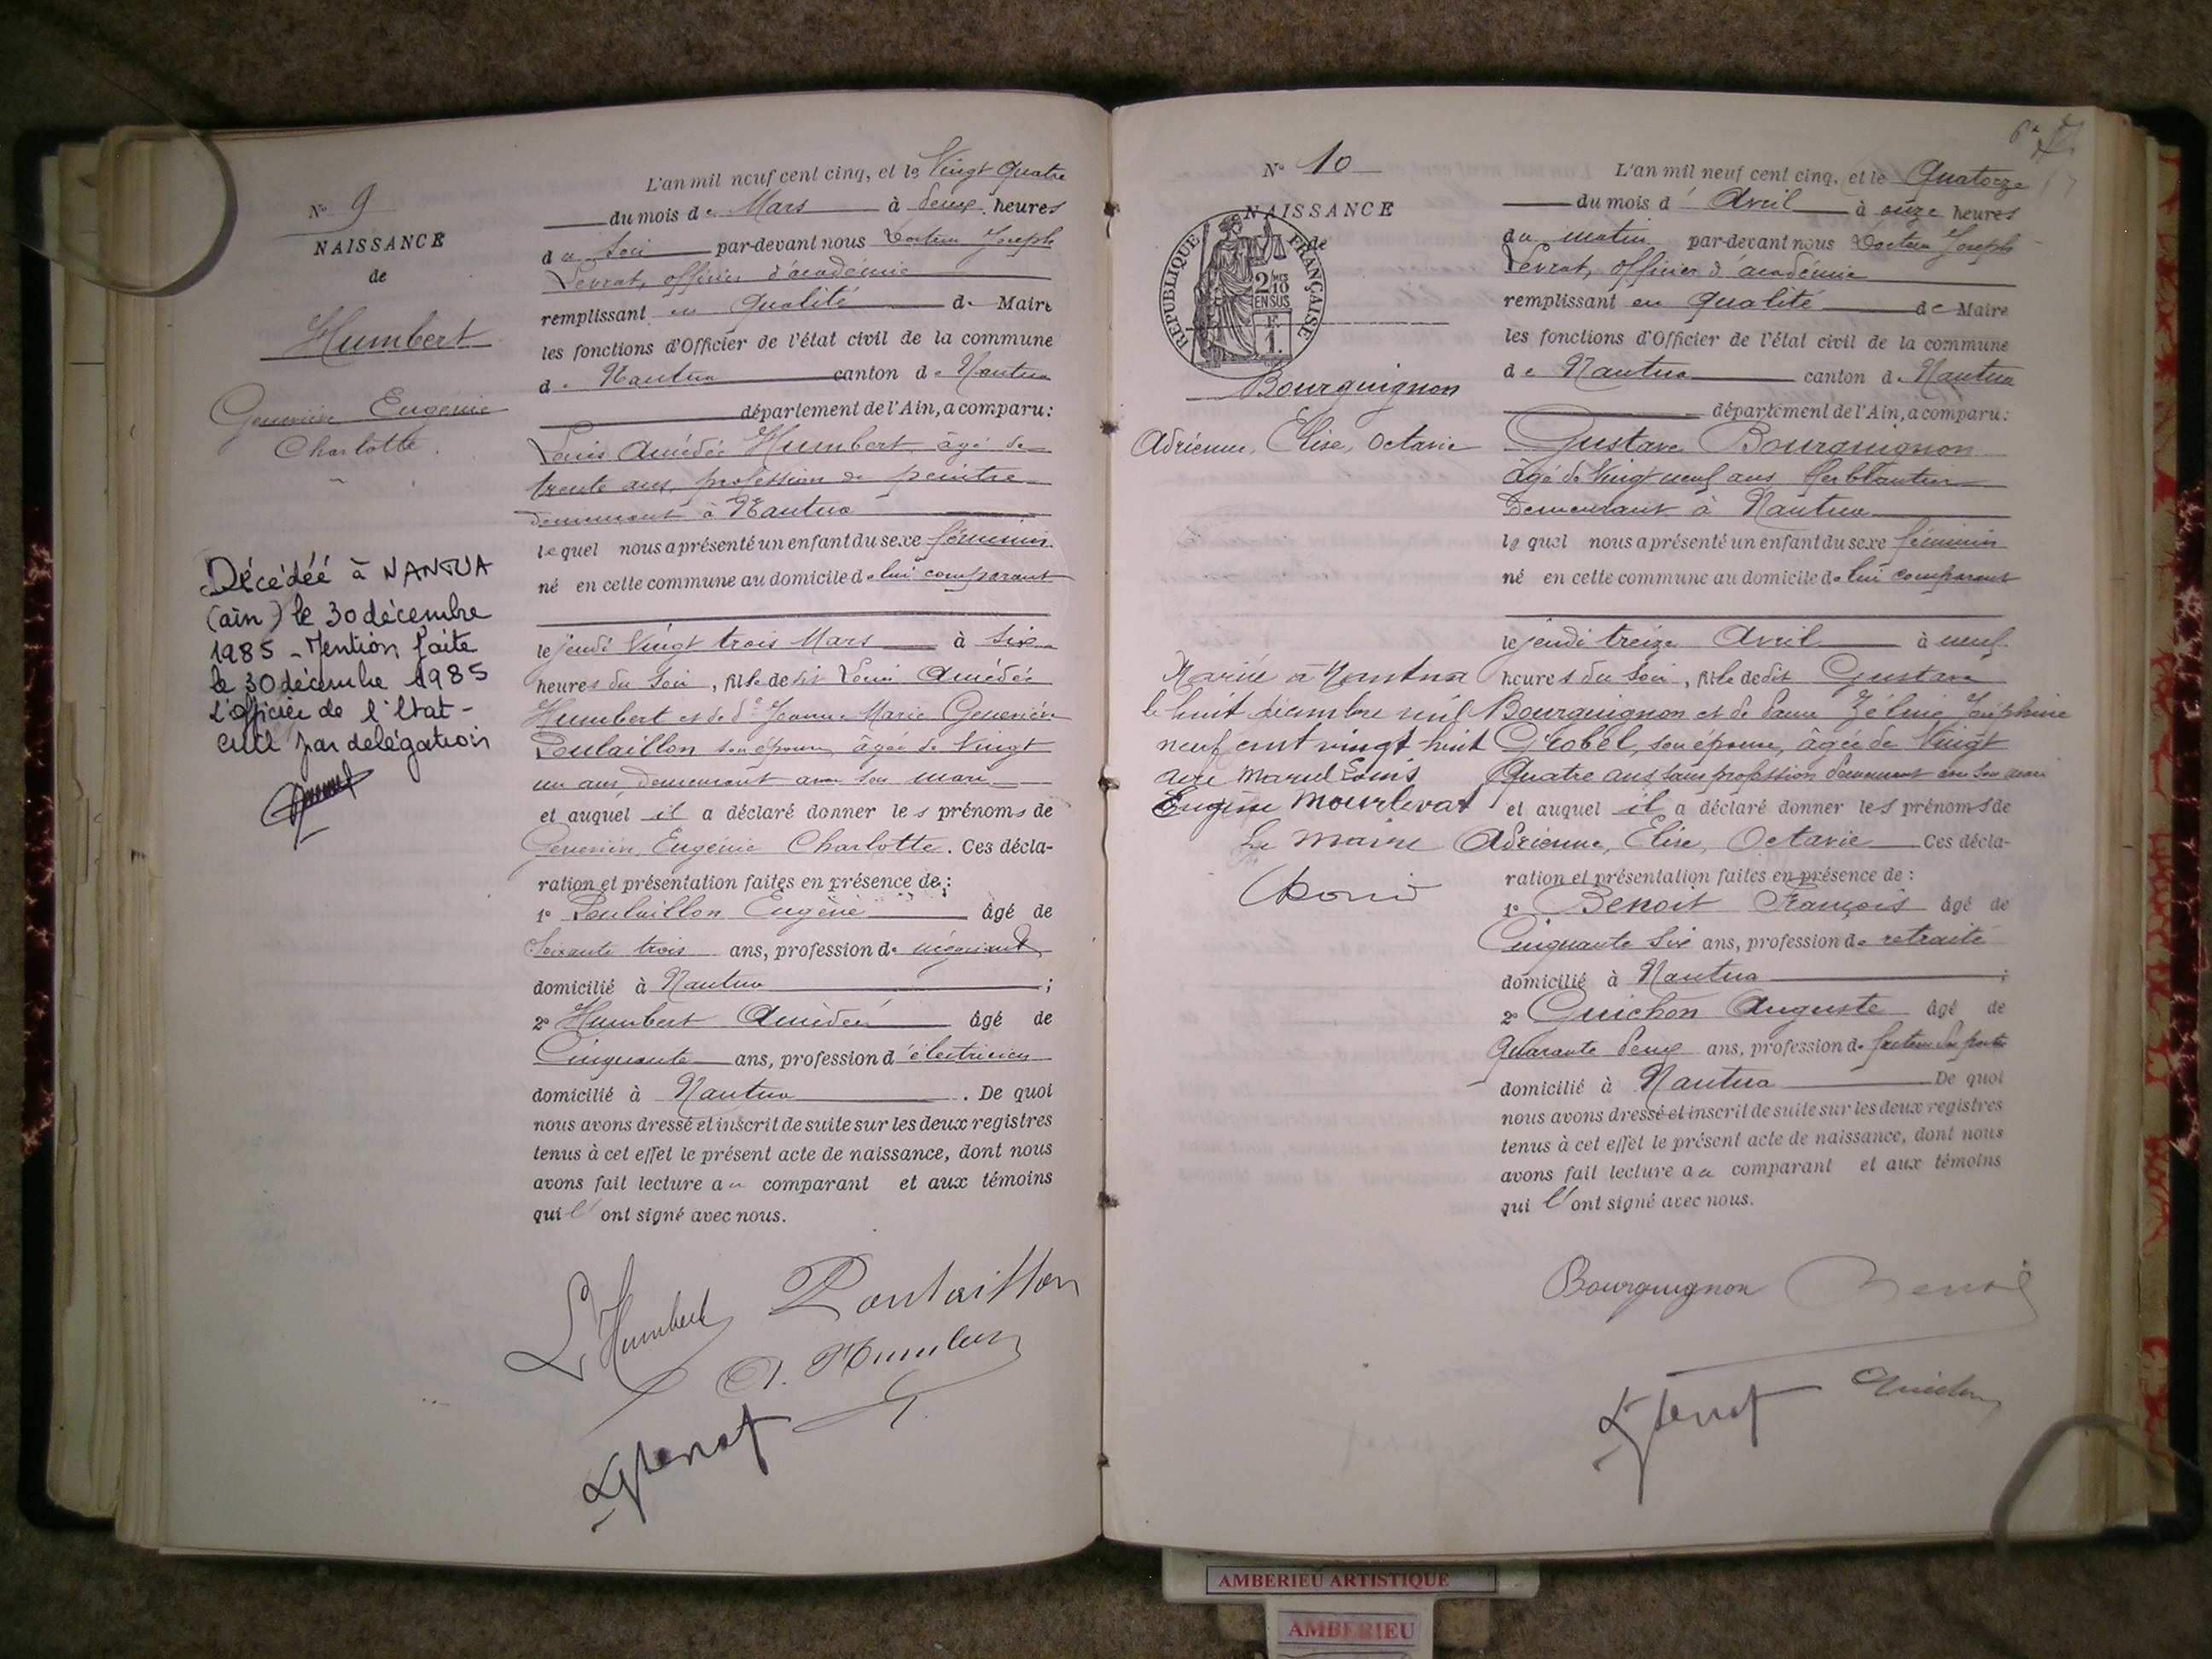 N° 9
NAISSANCE
de
Humbert
Geneviève Eugénie
Charlotte
Décédée à NANTUA
(ain) le 30 décembre
1985 - Mention faite
le 30 décembre 1985
L'officier de l'Etat-
civil par délégation
L'an mil neuf cent cinq, et le Vingt Quatre
du mois de Mars à deux heures
du soir par-devant nous Docteur Joseph
Levrat, officier d'académie
remplissant en qualité de Maire
les fonctions d'Officier de l'état civil de la commune
de Nantua canton de Nantua
département de l'Ain, a comparu :
Louis Amédée Humbert âgé de
trente ans, profession de peintre
demeurant à Nantua
lequel nous a présenté un enfant du sexe féminin
né en cette commune au domicile de lui comparant
le jeudi Vingt trois Mars à six
heures du soir, fille dedit Louis Amédée
Humbert et de de Jeanne Marie Geneviève
Poulaillon son épouse, âgée de Vingt
un ans, demeurant avec son mari
et auquel il a déclaré donner les prénoms de
Geneviève Eugénie Charlotte. Ces décla-
ration et présentation faites en présence de :
1° Poulaillon Eugène âgé de
Soixante trois ans, profession de négociant
domicilié à Nantua ;
2° Humbert Amédée âgé de
Cinquante ans, profession d'électricien
domicilié à Nantua . De quoi
nous avons dressé et inscrit de suite sur les deux registres
tenus à cet effet le présent acte de naissance, dont nous
avons fait lecture au comparant et aux témoins
qui l'ont signé avec nous.
L Humbert Poulaillon
A. Humbert
N° 10
NAISSANCE
de
RÉPUBLIQUE FRANÇAISE
2/10
EN SUS
F.
1.
Bourguignon
Adrienne, Elise, Octavie
Mariée à Nantua
le huit décembre mil
neuf cent vingt huit
avec Marcel Louis
Eugène Mourlevat
Le Maire
L'an mil neuf cent cinq, et le Quatorze
du mois d'Avril à onze heures
du matin par-devant nous Docteur Joseph
Levrat, officier d'académie
remplissant en qualité de Maire
les fonctions d'Officier de l'état civil de la commune
de Nantua canton de Nantua
département de l'Ain, a comparu :
Gustave Bourguignon
âgé de Vingt neuf ans ferblantier
Demeurant à Nantua
lequel nous a présenté un enfant du sexe féminin
né en cette commune au domicile de lui comparant
le jeudi treize Avril à neuf
heures du soir, fille dedit Gustave
Bourguignon et de dame Zélinie Joséphine
Grobel, son épouse, âgée de Vingt
Quatre ans sans profession demeurant avec son mari
et auquel il a déclaré donner les prénoms de
Adrienne, Elise, Octavie Ces décla-
ration et présentation faites en présence de :
1° Benoit François âgé de
Cinquante six ans, profession de retraité
domicilié à Nantua ;
2° Guichon Auguste âgé de
Quarante deux ans, profession de facteur des postes
domicilié à Nantua De quoi
nous avons dressé et inscrit de suite sur les deux registres
tenus à cet effet le présent acte de naissance, dont nous
avons fait lecture au comparant et aux témoins
qui l'ont signé avec nous.
Bourguignon Benoit
Guichon
AMBERIEU ARTISTIQUE
AMBERIEU